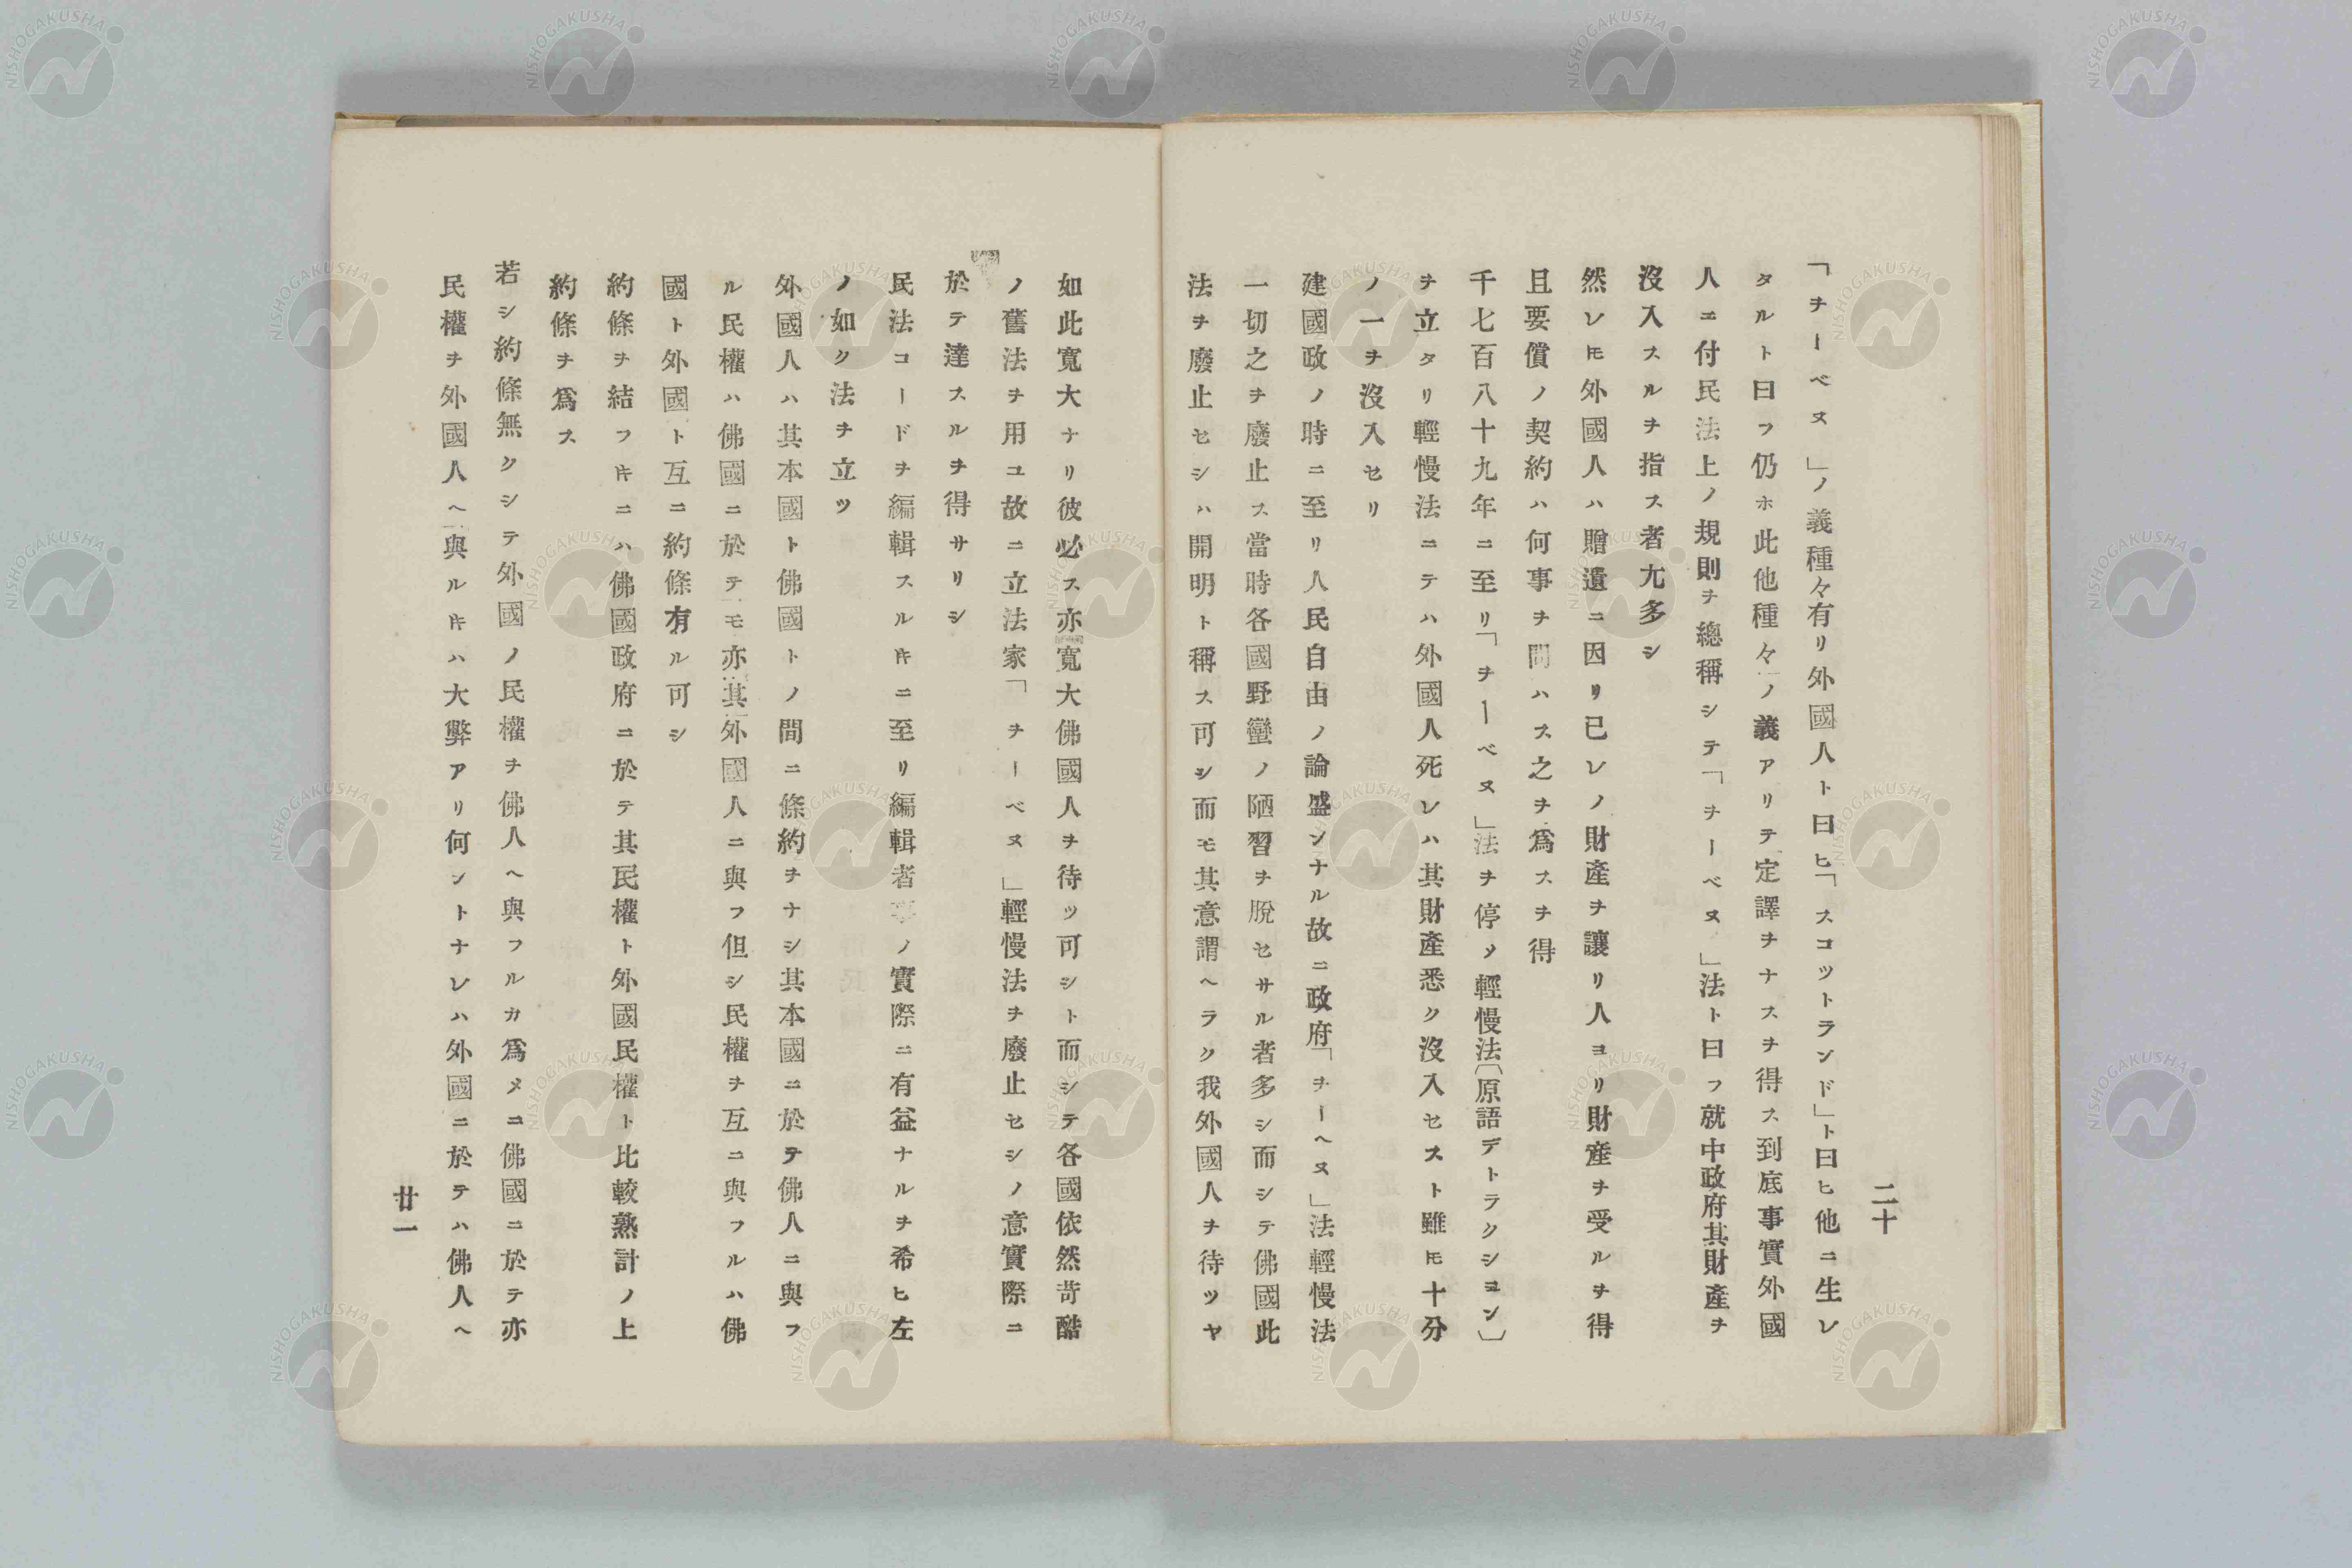 二十
「ヲーベヌ」ノ義種々有リ外國人ト曰ヒ「スコットランド」ト曰ヒ他ニ生レ
タルト曰フ仍ホ此他種々ノ義アリテ定譯ヲナスヲ得ス到底事實外國
人ニ付民法上ノ規則ヲ總稱シテ「ヲーベヌ」法ト曰フ就中政府其財產ヲ
沒入スルヲ指ス者尢多シ
然レ𪜈外國人ハ贈遺ニ因リ已レノ財產ヲ讓リ人ヨリ財產ヲ受ルヲ得
且要償ノ契約ハ何事ヲ問ハス之ヲ爲スヲ得
千七百八十九年ニ至リ「ヲーベヌ」法ヲ停メ輕慢法〔原語デトラクシヨン〕
ヲ立タリ輕慢法ニテハ外國人死レハ其財產悉ク沒入セスト雖𪜈十分
ノ一ヲ沒入セリ
建國政ノ時ニ至リ人民自由ノ論盛ンナル故ニ政府「ヲーヘヌ」法輕慢法
一切之ヲ廢止ス當時各國野蠻ノ陋習ヲ脫セサル者多シ而シテ佛國此
法ヲ廢止セシハ開明ト稱ス可シ而モ其意謂ヘラク我外國人ヲ待ツヤ
如此寬大ナリ彼必ス亦寬大佛國人ヲ待ッ可シト而シテ各國依然苛酷
ノ舊法ヲ用ユ故ニ立法家「ヲーベヌ」輕慢法ヲ廢止セシノ意實際ニ
於テ達スルヲ得サリシ
民法コードヲ編輯スル𪜈ニ至リ編輯者ノ實際ニ有益ナルヲ希ヒ左
ノ如ク法ヲ立ツ
外國人ハ其本國ト佛國トノ間ニ條約ヲナシ其本國ニ於テ佛人ニ與フ
ル民權ハ佛國ニ於テモ亦其外國人ニ與フ但シ民權ヲ互ニ與フルハ佛
國ト外國ト互ニ約條有ル可シ
約條ヲ結フ𪜈ニハ佛國政府ニ於テ其民權ト外國民權ト比較熟計ノ上
約條ヲ爲ス
若シ約條無クシテ外國ノ民權ヲ佛人ヘ與フルカ爲メニ佛國ニ於テ亦
民權ヲ外國人ヘ與ル𪜈ハ大弊アリ何ントナレハ外國ニ於テハ佛人ヘ
廿一
NISHOGAKUSHA